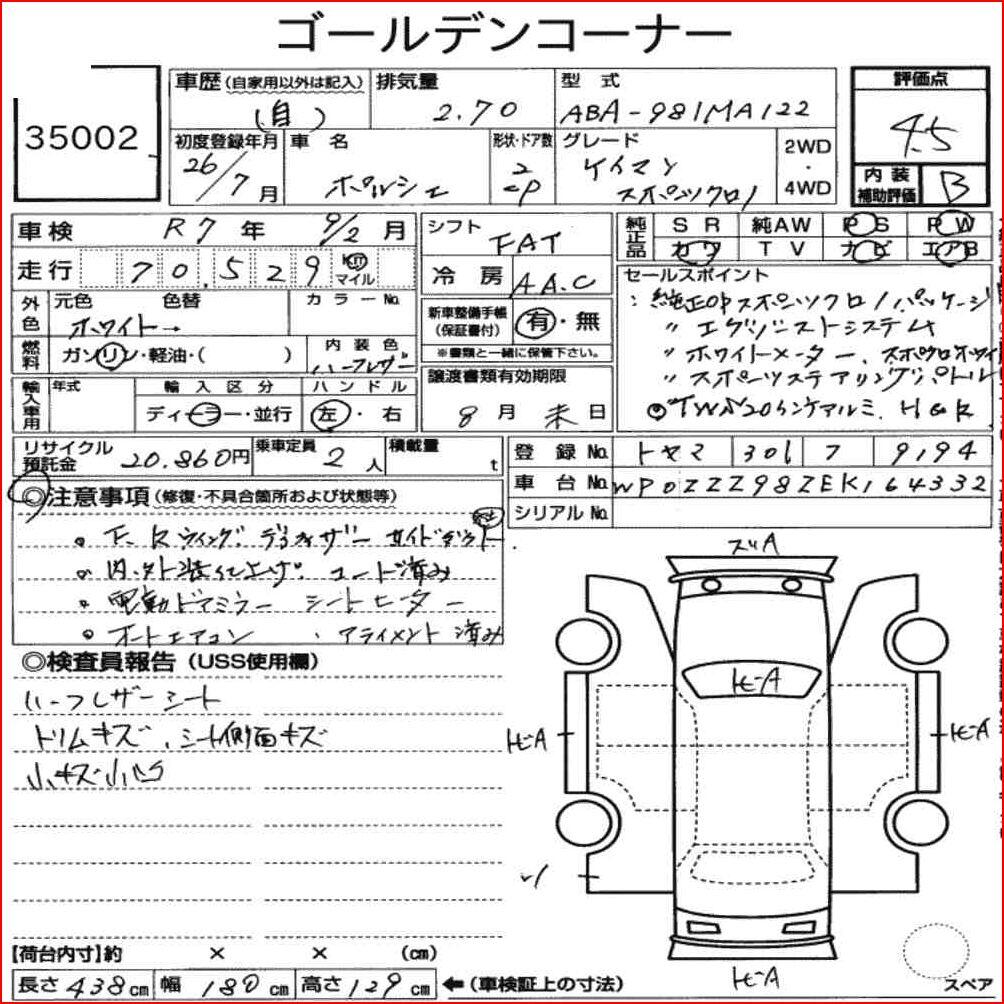 ゴールデンコーナー
35002
車歴 (自家用以外は記入) 排気量 型式 評価点
(自) 2.70 ABA-981MA122 4.5
初度登録年月 車名 形状・ドア数 グレード 2WD・4WD 内装補助評価 B
26/7月 ポルシェ 2 cp ケイマン
スポーツクロノ
車検 R7年 9/2月 シフト FAT 純正品 SR 純AW PS PW
カワ TV カビ エアB
走行 70,529 km マイル 冷房 AA.C
セールスポイント
外色 元色 色替 カラーNo.
ホワイト→
新車整備手帳(保証書付) 有・無
※書類と一緒に保管下さい。
燃料 ガソリン・軽油・( ) 内装色 ハーフレザー
:純正OPスポーツクロノパッケージ
〃エグゾーストシステム
〃ホワイトメーター、
〃スポーツステアリングパドル
20インチアルミ. H&R
譲渡書類有効期限
8月末日
輸入車用 年式 輸入区分 ハンドル
ディーラー・並行 左・右
リサイクル預託金 20.860円 乗車定員 2人 積載量 t
登録No. 301 9194
車台No. WP0ZZZ98ZEK164332
シリアルNo.
◎注意事項 (修復・不具合箇所および状態等)
・F、Rウィング デフューザー サイドデフ
・内、外装仕上げ. コート済み
・電動ドアミラー シートヒーター
・オートエアコン 、アライメント済み
◎検査員報告 (USS使用欄)
ハーフレザーシート
トリムキズ、シート側面キズ
小キズ小凹
ズリA
トビA
トビA
トビA
トビA
【荷台内寸】約 × × (cm)
長さ 438cm 幅 180cm 高さ 129cm ←(車検証上の寸法)
スペア